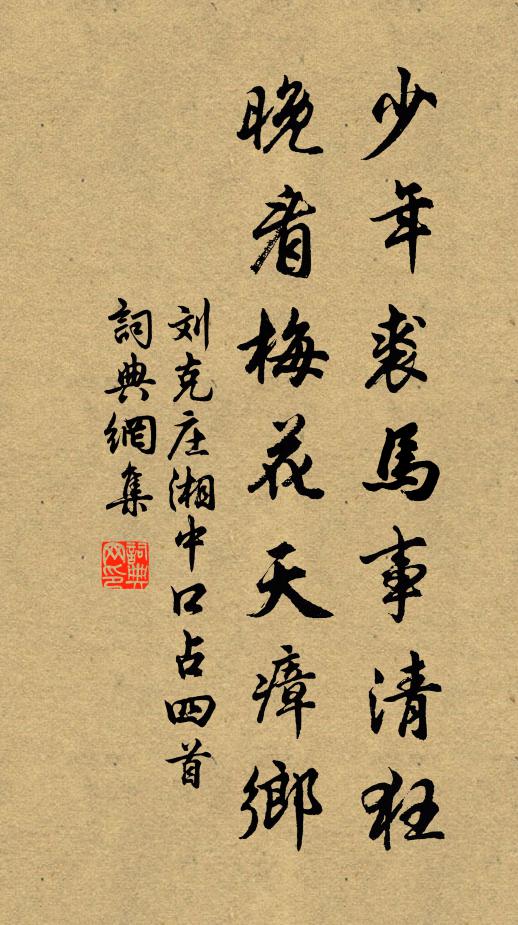 少年裘馬事清狂
晚看梅花天瘴鄉
刘克庄湘中口占四首
詞典網集
詞典
网印